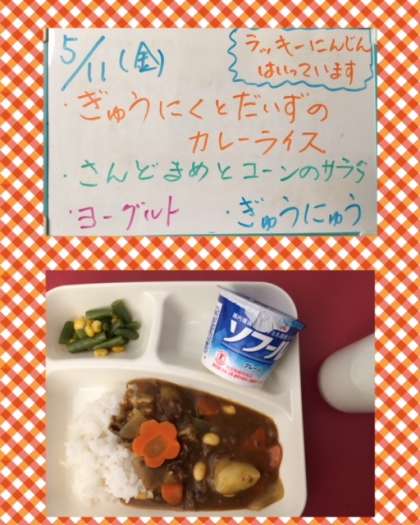 5/11(金)
ラッキーにんじん
はいっています
・ぎゅうにくとだいずの
カレーライス
・さんどまめとコーンのサラダ
・ヨーグルト ・ぎゅうにゅう
ソフール
プレーン